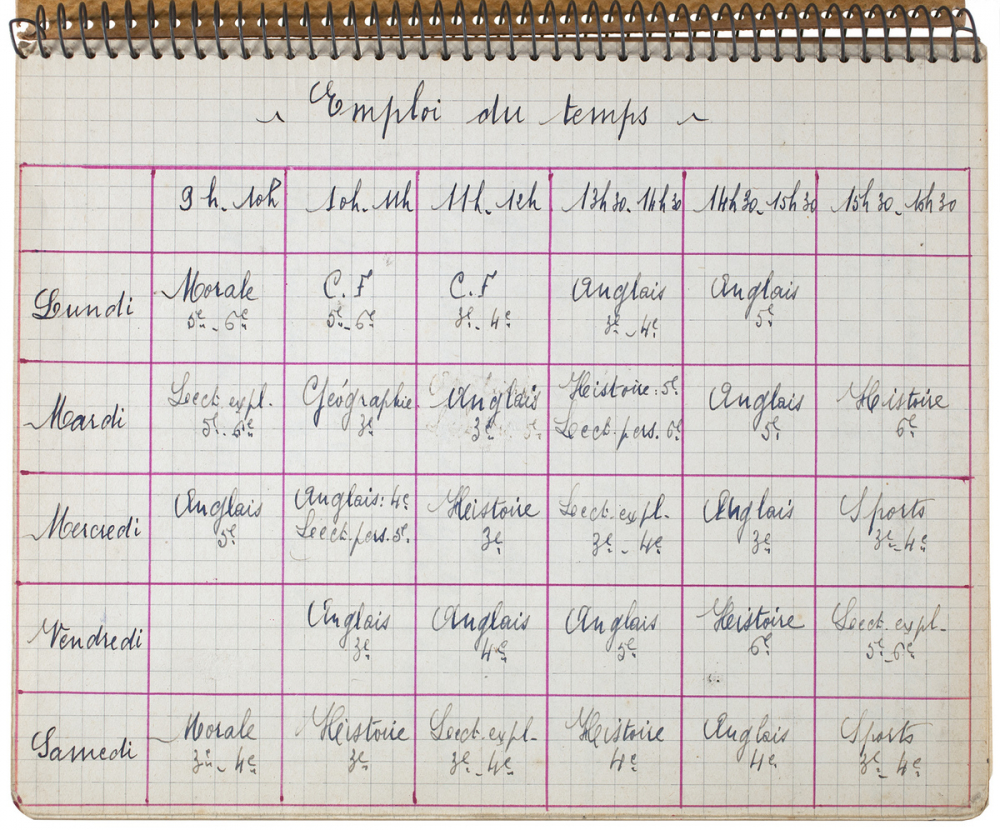 Emploi du temps
9 h - 10h 10h - 11h 11h - 12h 13h30 - 14h30 14h30 - 15h30 15h30 - 16h30
Lundi
Morale
5e - 6e
C.F
5e - 6e
C.F
3e - 4e
Anglais
3e - 4e
Anglais
5e
Mardi
Lect. expl.
5e - 6e
Géographie
3e
Anglais
3e
Histoire : 5e
Lect. pers. 6e
Anglais
5e
Histoire
6e
Mercredi
Anglais
5e
Anglais : 4e
Lect. pers. 5e
Histoire
3e
Lect. expl.
3e - 4e
Anglais
3e
Sports
3e - 4e
Vendredi
Anglais
3e
Anglais
4e
Anglais
5e
Histoire
6e
Lect. expl.
5e - 6e
Samedi
Morale
3e - 4e
Histoire
3e
Lect. expl.
3e - 4e
Histoire
4e
Anglais
4e
Sports
3e - 4e